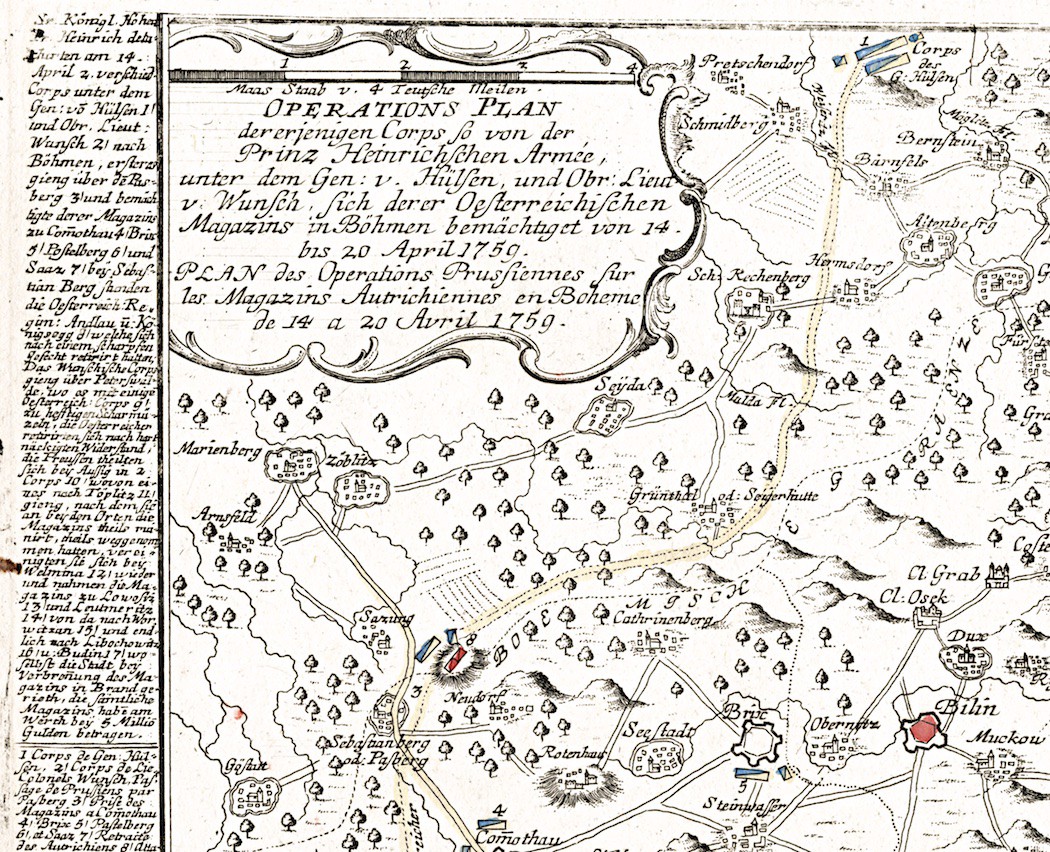 Sr. Königl. Hoheit
Pr. Heinrich deta
April 2. verschied.
Corps unter dem
Gen: võ Hülsen 1!
und Obr. Lieut:
Wunsch 2! nach
Böhmen, ersterer
gieng über
berg 3! und bemäch
tigte derer Magazins
zu Comothau 4! Brix
5! Postelberg 6! und
Saaz 7! bey Sebas-
tian Berg stunden
die Oesterreich: Re-
gim: Andlau u. Kö-
nigsegg 8! welche sich
nach einem scharpfen
Gefecht retirirt hatten,
Das Wunschische Corps
gieng über Peterswal-
de, wo es mit einige
Oesterreich: Corps 9!
zu hefftigen Scharmü-
zeln, die Oesterreicher
retirirten sich nach hart
näckigten Widerstand,
die Preussen theilten
sich bey Aussig in 2.
Corps 10! wovon ei-
nes nach Töplitz 11!
gieng, nach dem sie
an beyden Orten die
Magazins theils rui-
nirt, theils weggenom
men hatten, verei-
nigten sie sich bey
Welmina 12! wieder
und nahmen die Ma-
gazins zu Lowositz
13! und Leutmeritz
14! von da nach Wor
witzan 15! und end-
lich nach Liborhowitz
16! u: Budin 17! wo-
selbst die Stadt bey
Verbrenung des Ma-
gazins in Brand ge-
rieth, die sämtliche
Magazins haben am
Werth bey 5 Millio
Gulden betragen.
1 Corps de Gen: Hül-
sen 2! Corps de Lie
Colonels Wunsch. Pas-
sage de Prussiens par
Pasberg 3! Prise des
Magazins a Comothau
4! Brix 5! Pastelberg
6! et Saaz 7! Retraite
des Autrichiens 8! Atta
1 2 3 4
Maas Staab v. 4 Teutsche Meilen.
OPERATIONS PLAN
dererjenigen Corps so von der
Prinz Heinrichschen Armée,
unter dem Gen: v. Hülsen, und Obr: Lieut
v: Wunsch, sich derer Oesterreichischen
Magazins in Böhmen bemächtiget von 14.
bis 20 April 1759.
PLAN des Operations Prussiennes sur
les Magazins Autrichiennes en Boheme
de 14 a 20 Avril 1759.
1
Corps
des
G: Hülsen
Pretschendorf
Schmidberg
Bernstein
Bärnfels
Altenberg
Hermsdorf
Sch: Rechenberg
Seyda
Mulda Fl.
Marienberg
Zöblitz
Grünthal od: Seigerhütte
Arnsfeld
GRÆNZE
BOHEMISCH
Cathrinenberg
Cl: Grab
Cl: Osek
Dux
Sazung
8
3
Neudorf
Sebastianberg
od: Pasberg
Rotenhaus
Seestadt
Brix
Obernitz
Bilin
Muckow
5
Steinwasser
4
Comothau